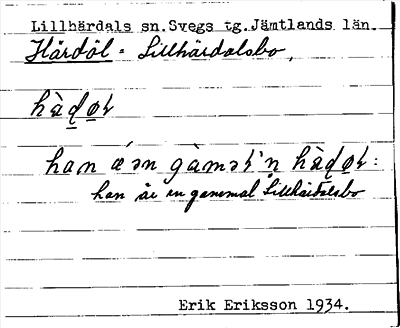 Lillhärdals sn. Svegs tg. Jämtlands län.
Härdöl = Lillhärdalsbo,
hàḍøɫ
han æ´ ən gàməɫ`n hàḍøɫ:
han är en gammal Lillhärdalsbo
Erik Eriksson 1934.